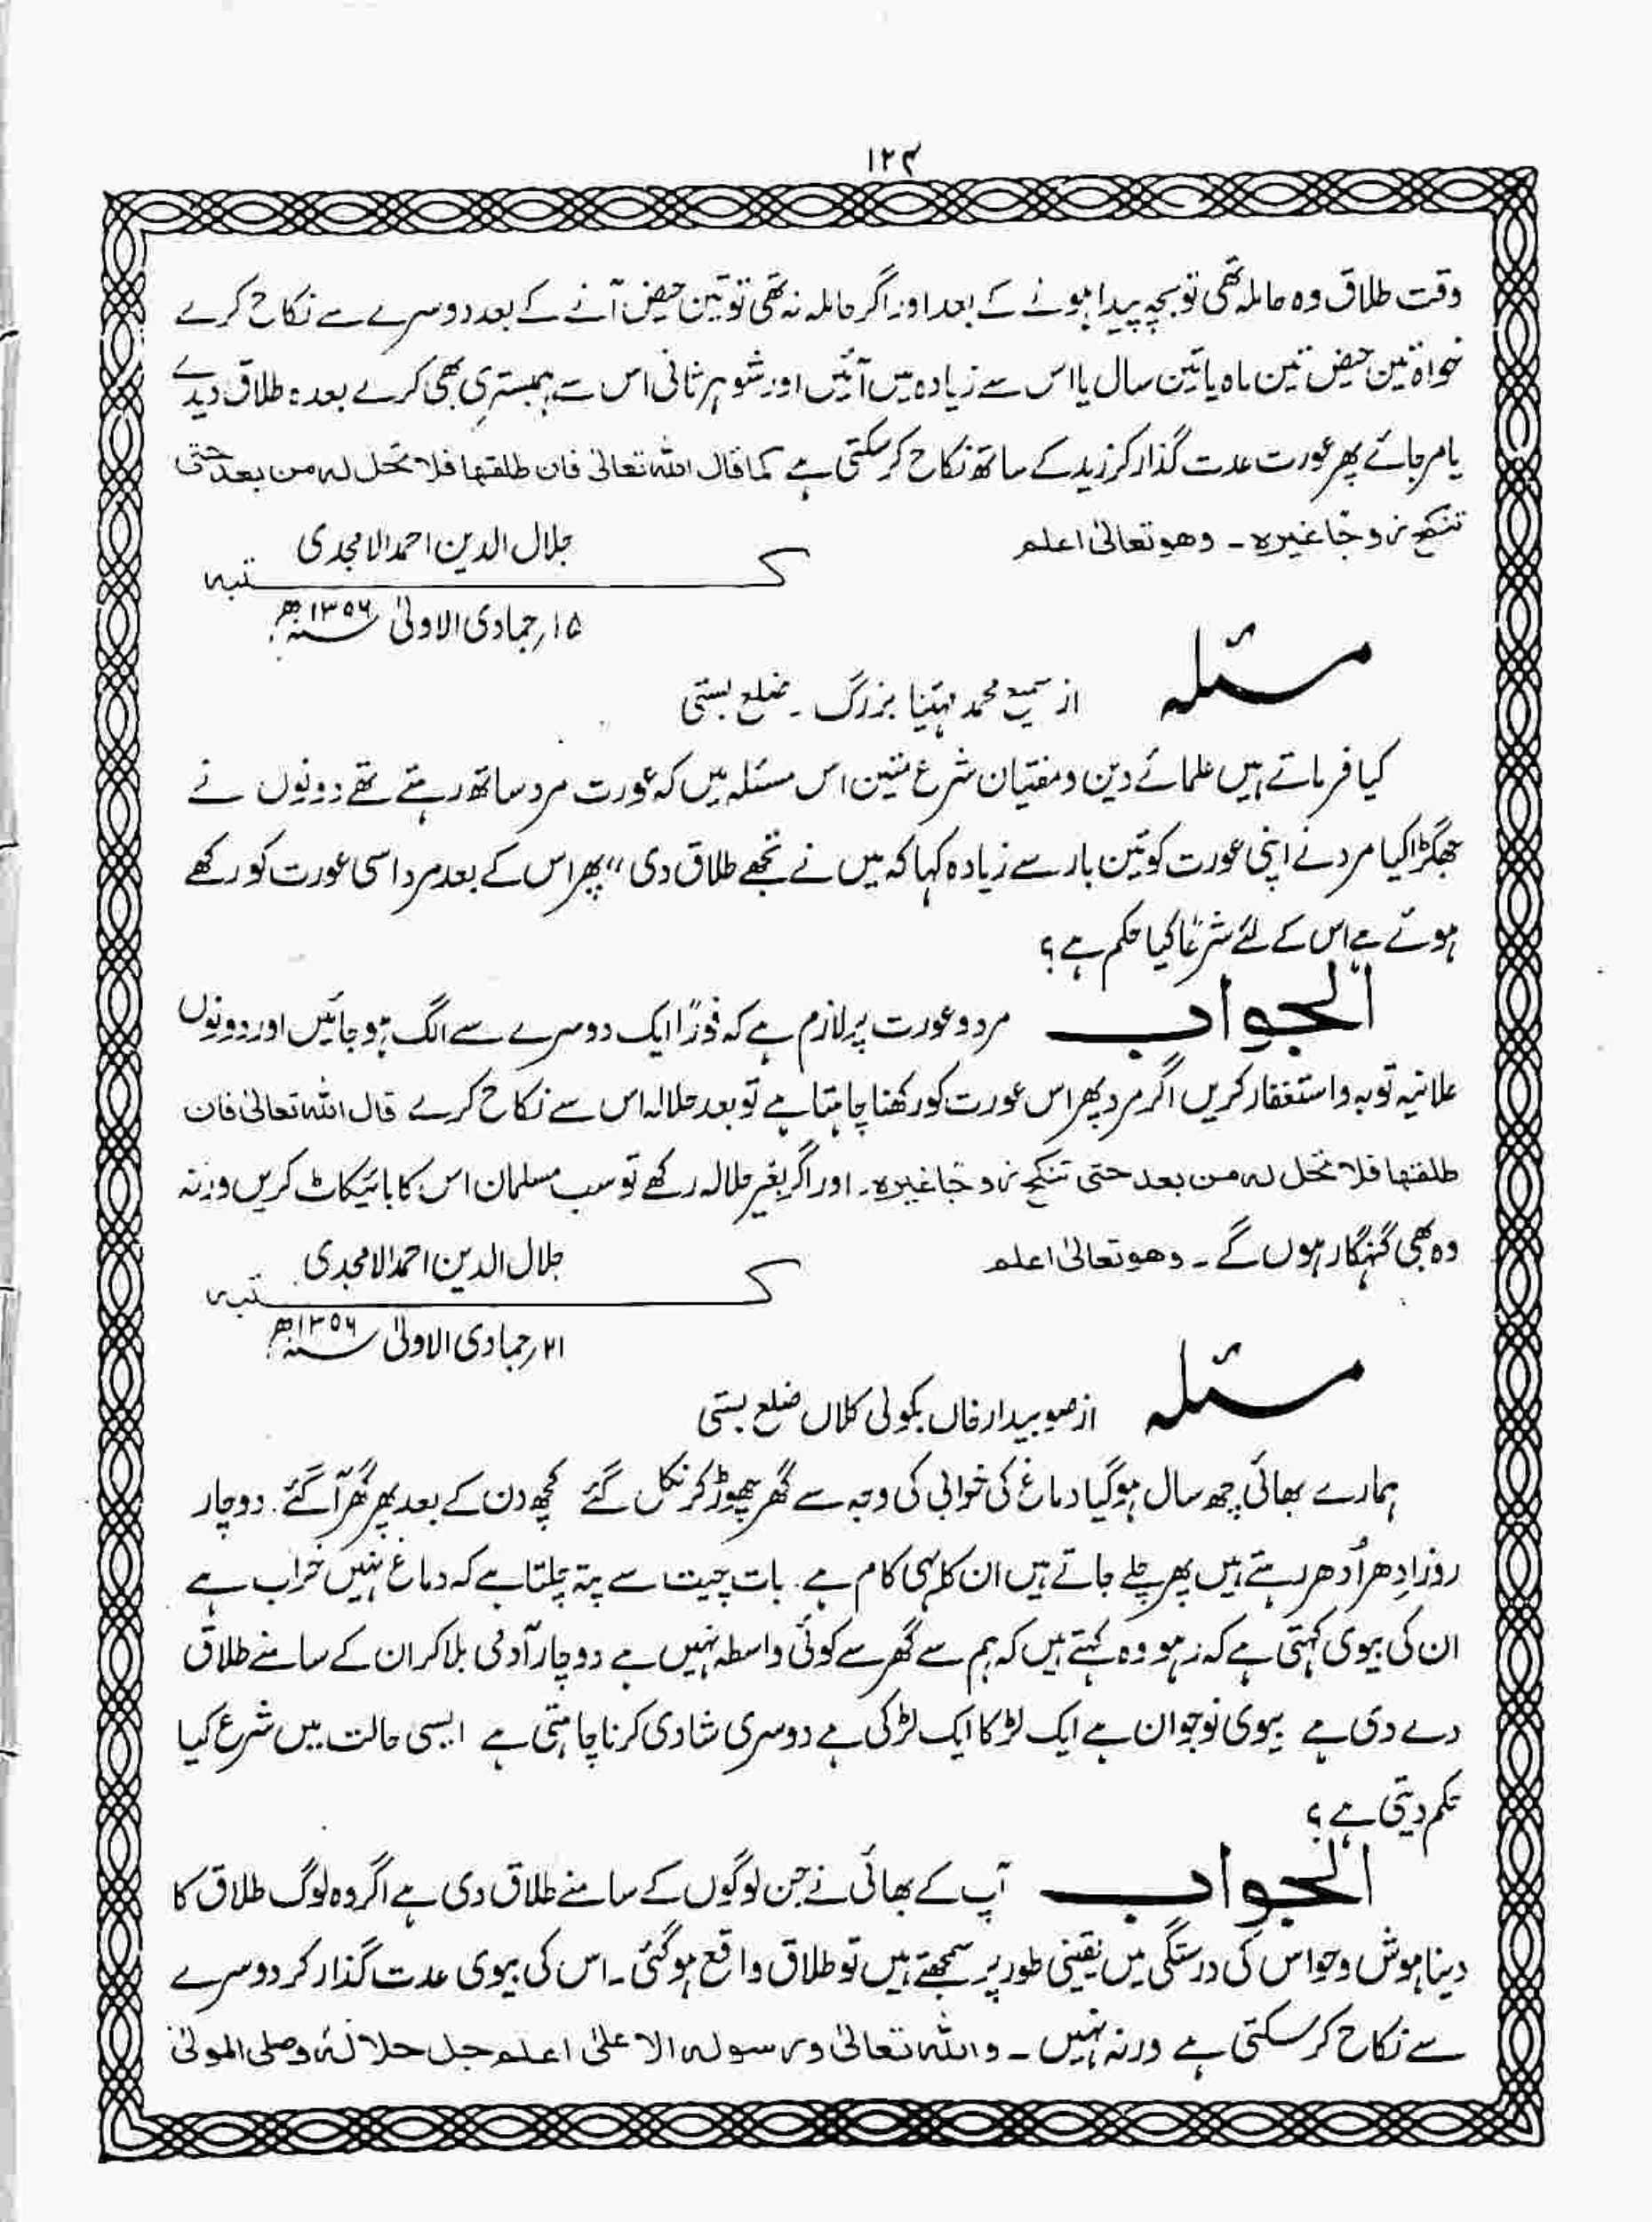 ۱۲۴
وقت طلاق وہ حاملہ تھی تو بچہ پیدا ہونے کے بعد اور اگر حاملہ نہ تھی تو تین حیض آنے کے بعد دوسرے سے نکاح کرے
خواہ تین حیض تین ماہ یا تین سال یا اس سے زیادہ میں آئیں اور شوہر ثانی اس سے ہمبستری بھی کرے بعدہ طلاق دیدے
یا مر جائے پھر عورت عدت گذار کر زید کے ساتھ نکاح کر سکتی ہے کما قال اللہ تعالیٰ فان طلقھا فلا تحل لہ من بعد حتی
تنکح زوجا غیرہ ۔ وھو تعالیٰ اعلم
جلال الدین احمد الامجدی
کتبہ
۱۵؍ جمادی الاولیٰ سنہ ۱۳۵۶ھ
مسئلہ
از سمیع محمد مہتنیا بزرگ ۔ ضلع بستی
کیا فرماتے ہیں علمائے دین و مفتیان شرع متین اس مسئلہ میں کہ عورت مرد ساتھ رہتے تھے دونوں نے
جھگڑا کیا مرد نے اپنی عورت کو تین بار سے زیادہ کہا کہ میں نے تجھے طلاق دی ،، پھر اس کے بعد مرد اسی عورت کو رکھے
ہوئے ہے اس کے لئے شرعًا کیا حکم ہے ؟
الجواب مرد و عورت پر لازم ہے کہ فورًا ایک دوسرے سے الگ ہو جائیں اور دونوں
علانیہ توبہ و استغفار کریں اگر مرد پھر اس عورت کو رکھنا چاہتا ہے تو بعد حلالہ اس سے نکاح کرے قال اللہ تعالیٰ فان
طلقھا فلا تحل لہ من بعد حتی تنکح زوجا غیرہ ۔ اور اگر بغیر حلالہ رکھے تو سب مسلمان اس کا بائیکاٹ کریں ورنہ
وہ بھی گنہگار ہوں گے ۔ وھو تعالیٰ اعلم
جلال الدین احمد الامجدی
کتبہ
۲۱؍ جمادی الاولیٰ سنہ ۱۳۵۶ھ
مسئلہ
از صوبیدار خاں بکولی کلاں ضلع بستی
ہمارے بھائی چھ سال ہو گیا دماغ کی خرابی کی وجہ سے گھر چھوڑ کر نکل گئے کچھ دن کے بعد پھر گھر آ گئے ۔ دو چار
روز اِدھر اُدھر رہتے ہیں پھر چلے جاتے ہیں ان کا یہی کام ہے ۔ بات چیت سے پتہ چلتا ہے کہ دماغ نہیں خراب ہے
ان کی بیوی کہتی ہے کہ رہو وہ کہتے ہیں کہ ہم سے گھر سے کوئی واسطہ نہیں ہے دو چار آدمی بلا کر ان کے سامنے طلاق
دے دی ہے بیوی نوجوان ہے ایک لڑکا ایک لڑکی ہے دوسری شادی کرنا چاہتی ہے ایسی حالت میں شرع کیا
حکم دیتی ہے ؟
الجواب آپ کے بھائی نے جن لوگوں کے سامنے طلاق دی ہے اگر وہ لوگ طلاق کا
دینا ہوش و حواس کی درستگی میں یقینی طور پر سمجھتے ہیں تو طلاق واقع ہو گئی ۔ اس کی بیوی عدت گذار کر دوسرے
سے نکاح کر سکتی ہے ورنہ نہیں ۔ واللہ تعالیٰ ورسولہ الاعلیٰ اعلم جل جلالہٗ وصلی المولیٰ